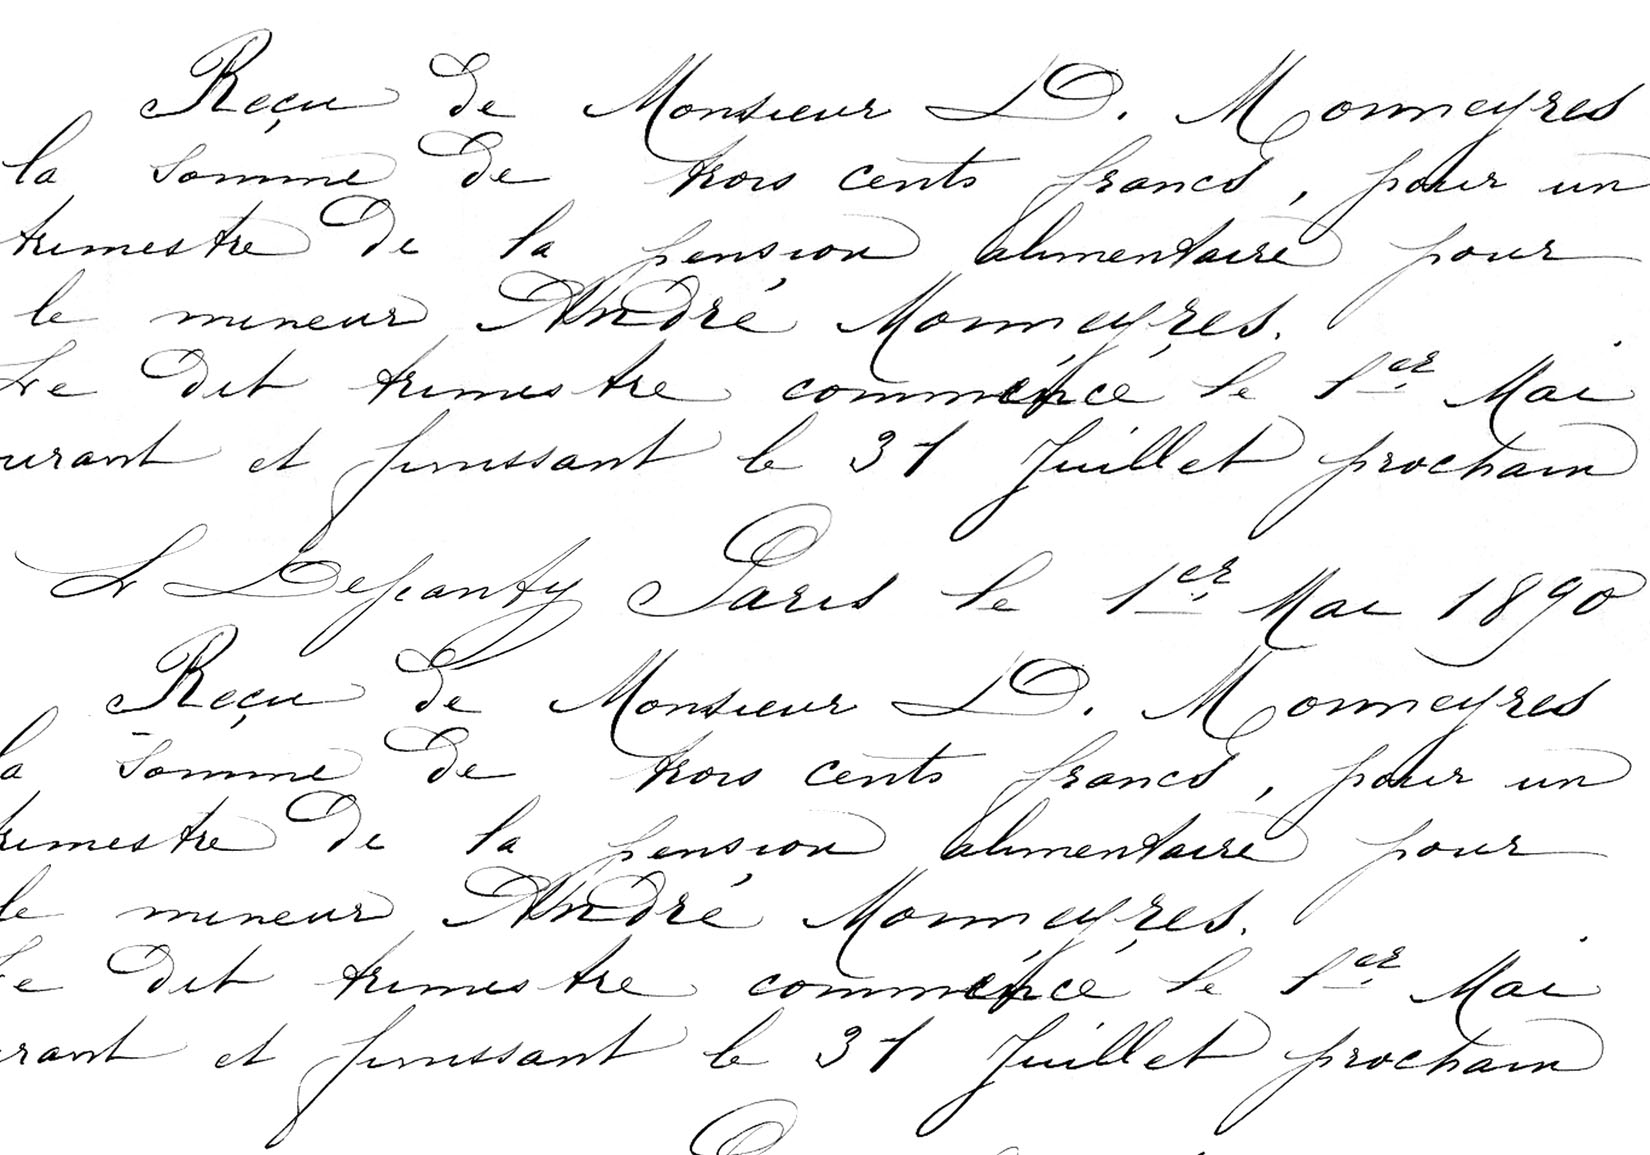 Reçu de Monsieur D. Monneyres
la Somme de trois cents francs, pour un
trimestre de la pension alimentaire pour
le mineur André Monneyres.
Le dit trimestre commencé le 1er Mai
urant et finissant le 31 Juillet prochain
Paris le 1er Mai 1890
Reçu de Monsieur D. Monneyres
la Somme de trois cents francs, pour un
rimestre de la pension alimentaire pour
le mineur André Monneyres.
Le dit trimestre commencé le 1er Mai
rant et finissant le 31 Juillet prochain